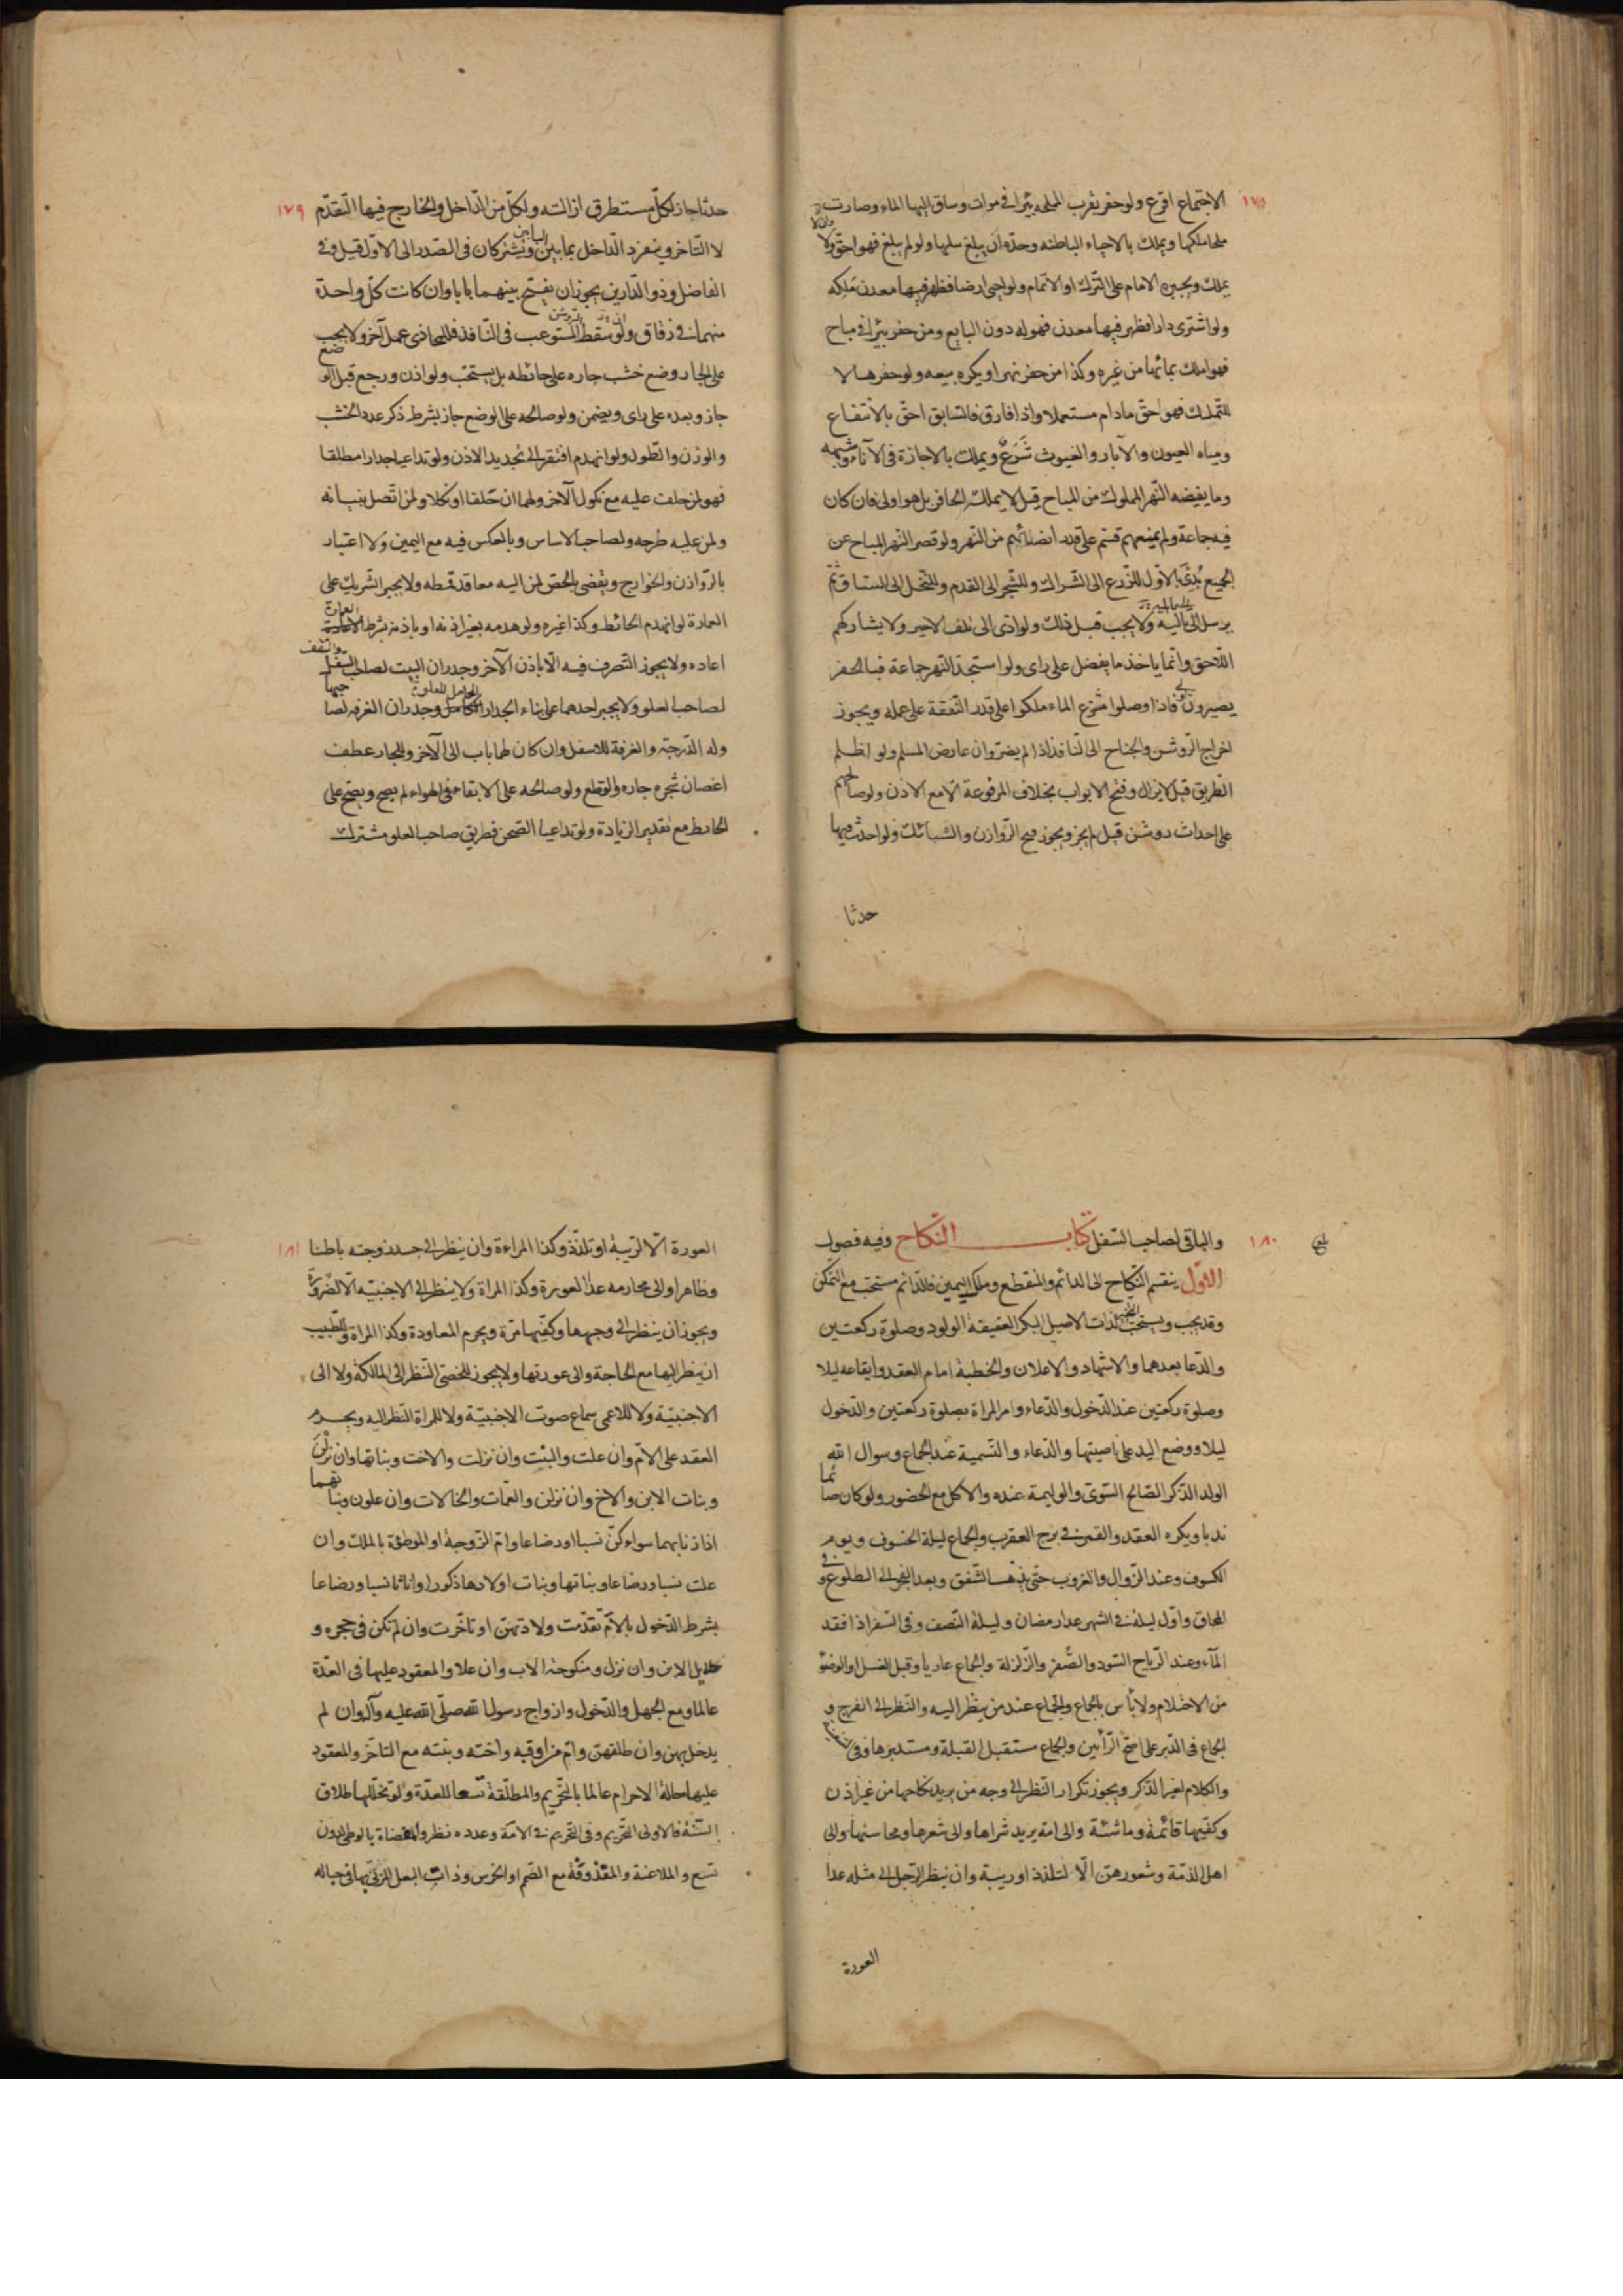 ١٧٨
الاجتماع اقرع ولو حفر بقرب المملحة بئرا في موات وساق اليها الماء وصارت
ملحا ملكها ويملك بالاحياء الباطنه وحدّه ان يبلغ نيلها ولو لم يبلغ فهو احقّ ولا
يملك ويجبره الامام على الترك او الاتمام ولو احيى ارضا فظهر فيها معدن مَلِكه
ولو اشترى دارا فظهر فيها معدن فهو له دون البايع ومن حفر بئرا في مباح
فهو املك بمائها من غيره وكذا من حفر نهرا ويكره بيعه ولو حفرها لا
للتملك فهو احقّ مادام مستعملا واذا فارق فالسّابق احقّ بالانتفاع
ومياه العيون والآبار والغيوث شَرَعٌ ويملك بالاجازة في الآناء وشبهه
وما يفيضه النّهر المملوك من المباح قيل لا يملكه الحافر بل هو اولى فان كان
فيه جماعة ولم يمنعهم قسّم على قدر انصبائهم من النّهر ولو قصر النّهر المباح عن
الجميع بُدِئَ بالاوّل للزّرع الى الشّراك وللشّجر الى القدم وللنّخل الى السّاق ثمّ
يرسل الى ما يليه ولا يجب قبل ذلك ولو ادّى الى تلف الاخير ولا يشاركهم
اللّاحق وانّما ياخذ ما يفضل على راى ولو استجدّ النّهر جماعة فبالحفر
يصيرون فاذا وصلوا منزع الماء ملكوا على قدر النّفقة على عمله ويجوز
اخراج الرّوشن والجناح الى النّافذ اذا لم يضرّ وان عارض المسلم ولو اظلم
الطّريق قيل لا يزال وفتح الابواب بخلاف المرفوعة الّا مع الاذن ولو صالحهم
على احداث روشن قيل لم يجز ويجوز فتح الرّوازن والشّبائك ولو احدث فيها
حدثا
١٧٩
حدثا جاز لكلّ مستطرق ازالته ولكلّ من الدّاخل والخارج فيها التّقدّم
لا التّاخر وينفرد الدّاخل بما بين البابين ويشتركان في الصّدر الى الاوّل قيل وفى
الفاضل وذو الدّارين يجوز ان يفتح بينهما بابا وان كانت كلّ واحدة
منهما في زقاق ولو سقط الرّوشن المستوعب في النّافذ فللمحاذى عمل آخر ولا يجب
على الجار وضع خشب جاره على حائطه بل يستحبّ ولو اذن ورجع قبل الوضع
جاز وبعده على راى ويضمن ولو صالحه على الوضع جاز بشرط ذكر عدد الخشب
والوزن والطّول ولو انهدم افتقر الى تجديد الاذن ولو تداعيا جدارا مطلقا
فهو لمن حلف عليه مع نكول الآخر ولهما ان حلفا او نكلا ولمن اتّصل ببنيانه
ولمن عليه طرحه ولصاحب الاساس وبالعكس فيه مع اليمين ولا اعتبار
بالرّوازن والخوارج ويقضى بالخصّ لمن اليه معاقد قمطه ولا يجبر الشّريك على
العمارة لو انهدم الحائط وكذا غيره ولو هدمه بغير اذنه او باذنه بشرط العمارة
اعاده ولا يجوز التّصرف فيه الّا باذن الآخر وجدران البيت لصاحب السّفل والسّقف
لصاحب العلو ولا يجبر احدهما على بناء الجدار الحامل للعلو وجدران الغرفة لصاحبها
وله الدّرجة والغرفة للاسفل وان كان لها باب الى الآخر وللجار عطف
اغصان شجرة جاره والقطع ولو صالحه على الابقاء في الهواء لم يصح ويصحّ على
الحايط مع تقدير الزيادة ولو تداعيا الصّحن فطريق صاحب العلو مشترك
١٨٠
والباقى لصاحب السّفل كتاب النّكاح وفيه فصول
الاوّل ينقسم النّكاح الى الدائم والمنقطع وملك اليمين فالدّائم مستحبّ مع التّمكّن
وقد يجب ويستحبّ تخيّر ذات الاصيل البكر العفيفة الولود وصلوة ركعتين
والدّعا بعدهما والاشهاد والاعلان والخطبة امام العقد وايقاعه ليلا
وصلوة ركعتين عند الدّخول والدّعاء وامر المراة بصلوة ركعتين والدّخول
ليلا ووضع اليد على ناصيتها والدّعاء والتّسمية عند الجماع وسوال الله
الولد الذّكر الصّالح السّوىّ والوليمة عنده والاكل مع الحضور ولو كان صائما
ندبا ويكره العقد والقمر في برج العقرب والجماع ليلة الخسوف ويوم
الكسوف وعند الزّوال والغروب حتّى يذهب الشّفق وبعد الفجر الى الطلوع وفى
المحاق واوّل ليلة في الشهر عدا رمضان وليلة النّصف وفى السّفر اذا فقد
المآء وعند الرّياح السّود والصُّفر والزّلزلة والجماع عاريا وقبل الغسل او الوضؤ
من الاحتلام ولا بأس بالجماع والجماع عند من ينظر اليه والنّظر الى الفرج و
الجماع فى الدّبر على اصحّ الرّأيين والجماع مستقبل القبلة ومستدبرها وفى السّفينة
والكلام لغير الذّكر ويجوز تكرار النّظر الى وجه من يريد نكاحها من غير اذن
وكفّيها قائمة وماشية والى امة يريد شراها والى شعرها ومحاسنها والى
اهل الذمّة وشعورهنّ الّا لتلذذ او ريبة وان ينظر الرّجل الى مثله عدا
العورة
١٨١
العورة الّا لريبة او تلذّذ وكذا المراءة وان ينظر الى جسد زوجته باطنا
وظاهرا والى محارمه عدا العورة وكذا المراة ولا ينظر الى الاجنبيّة الّا لضرورة
ويجوز ان ينظر الى وجهها وكفّيها مرّة ويحرم المعاودة وكذا المراة وللطّبيب
ان ينظر اليها مع الحاجة والى عورتها ولا يجوز للخصىّ النّظر الى المالكة ولا الى
الاجنبيّة ولا للاعمى سماع صوت الاجنبيّة ولا للمراة النّظر اليه ويحرم
العقد على الامّ وان علت والبنت وان نزلت والاخت وبناتها وان نزلن
وبنات الابن والاخ وان نزلن والعمّات والخالات وان علون وبناتهما
اذا زنا بهما سواء كنّ نسبا او رضاعا وامّ الزّوجة او الموطؤة بالملك وان
علت نسبا ورضاعا وبناتها وبنات اولادها ذكورا واناثا نسبا ورضاعا
بشرط الدّخول بالامّ تقدّمت ولادتهنّ او تاخّرت وان لم تكن فى حجره و
حلايل الابن وان نزل ومنكوحة الاب وان علا والمعقود عليها فى العدّة
عالما ومع الجهل والدّخول وازواج رسول الله صلّى الله عليه وآله وان لم
يدخل بهنّ وان طلقهنّ وامّ من اوقبه واخته وبنته مع التاخّر والمعقود
عليها حالة الاحرام عالما بالتّحريم والمطلّقة تسعا للعدّة ولو تخلّلها طلاق
السّنّة فالاولى التّحريم وفى التّحريم في الامة وعدده نظر والمفضاة بالوطى دون
تسع والملاعنة والمقذوفة مع الصّمم او الخرس وذات البعل المزنىّ بها فى حباله